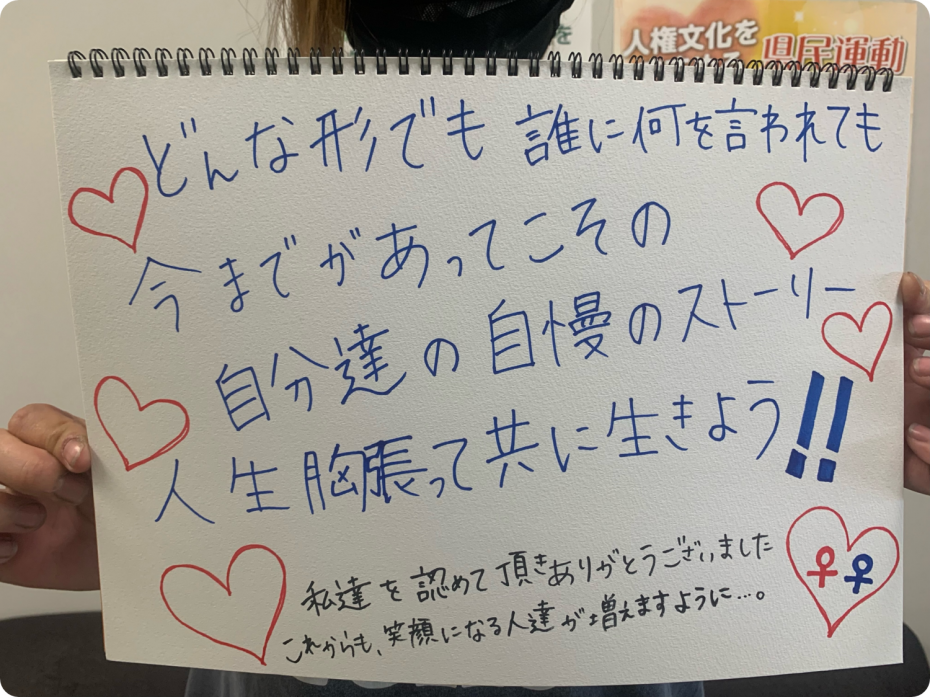 人権文化を
県民運動
を
どんな形でも 誰に何を言われても
今までがあってこその
自分達の自慢のストーリー
人生胸張って共に生きよう!!
私達を認めて頂きありがとうございました
これからも、笑顔になる人達が増えますように…。